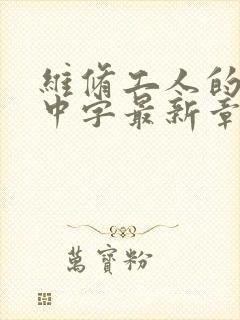 維脩工人的
中字最新章
萬寶粉